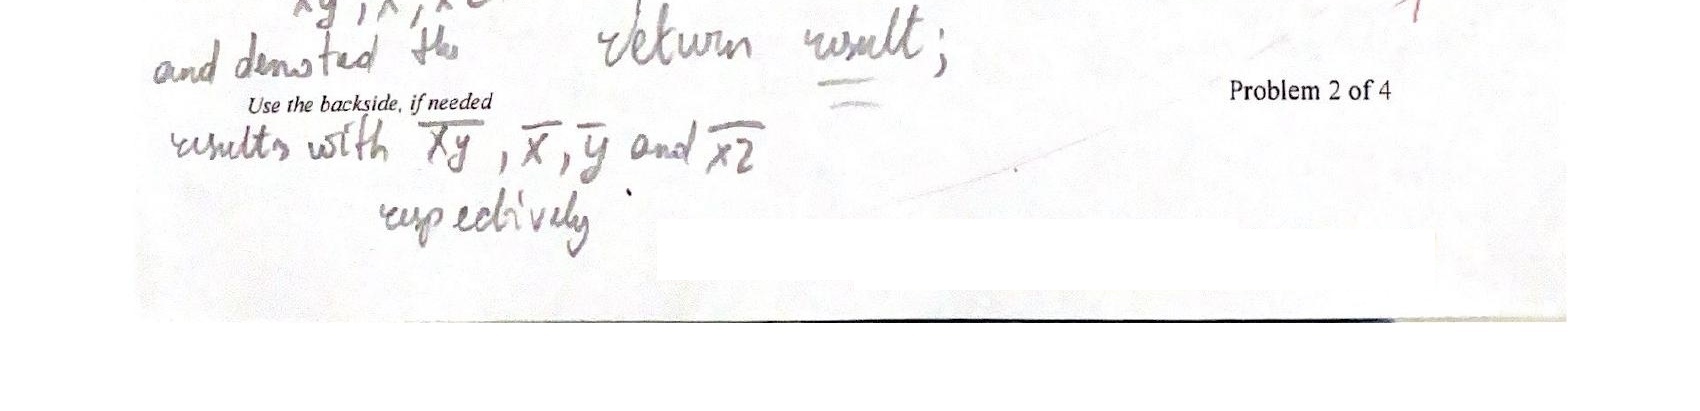 and denoted the return result;
Use the backside, if needed
Problem 2 of 4
results with x̅y̅, x̅, y̅ and x̅2̅
respectively